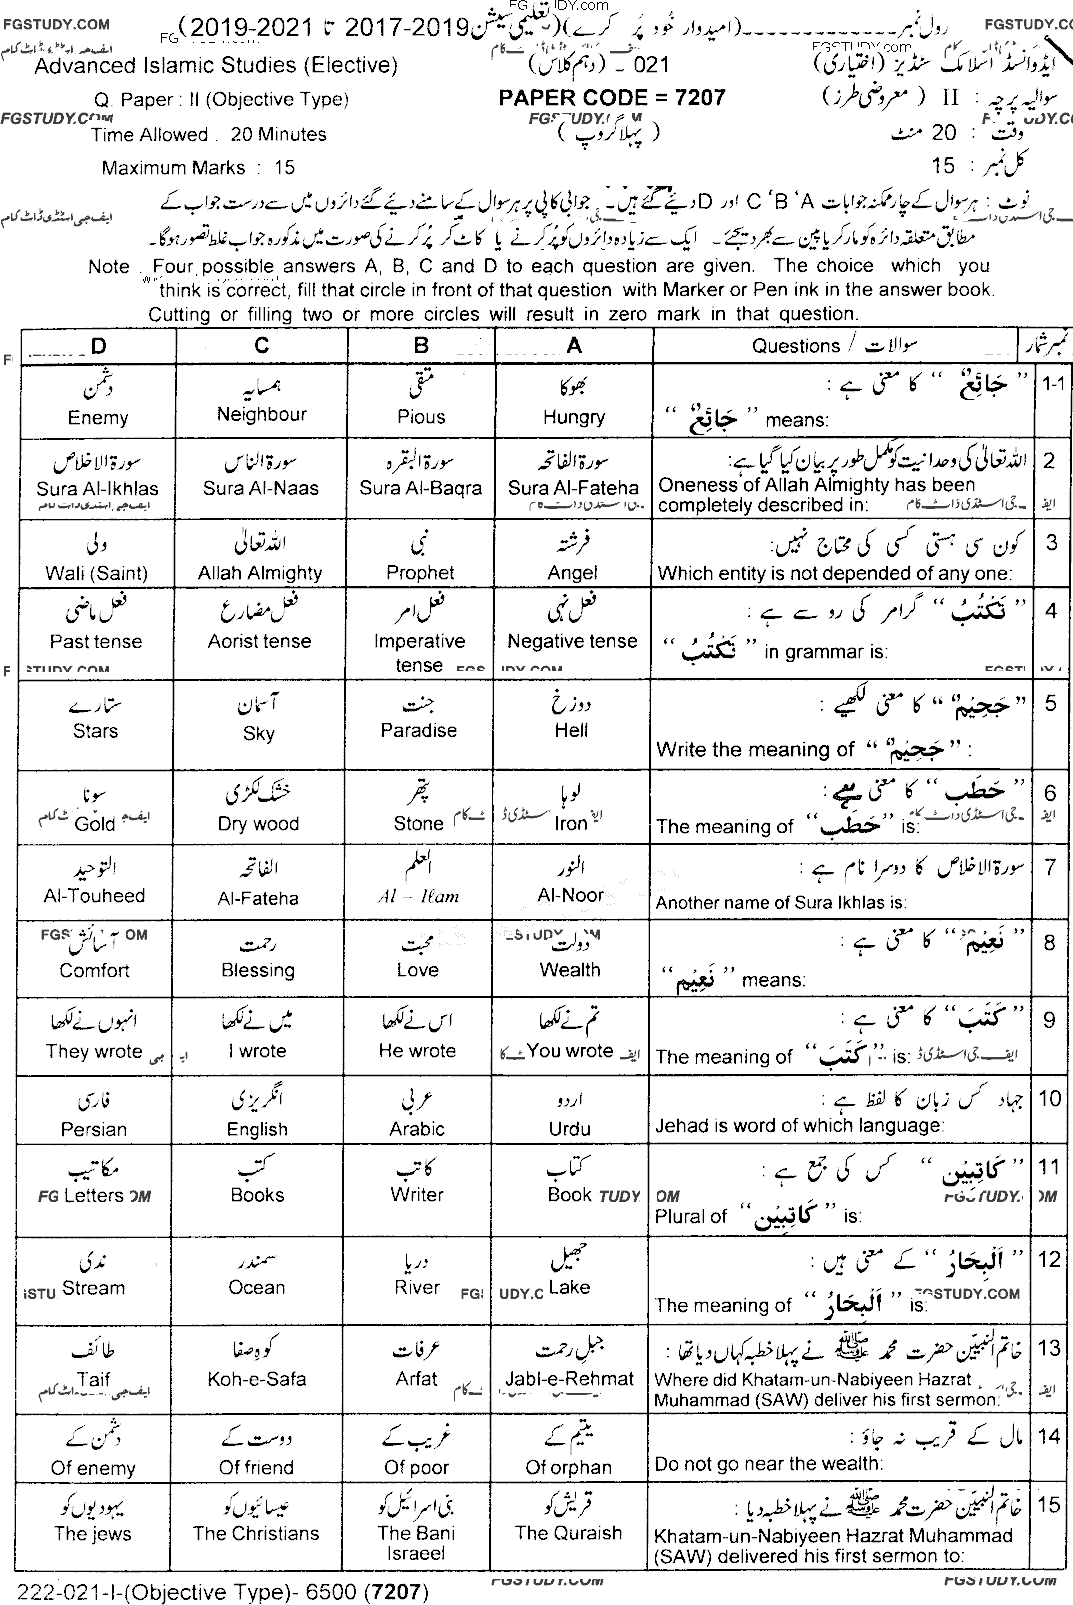 FGSTUDY.COM
رول نمبر --------------(امیدوار خود پُر کرے)(تعلیمی سیشن 2017-2019 تا 2019-2021)
FGSTUDY.COM
Advanced Islamic Studies (Elective)
021 - (دہم کلاس)
ایڈوانسڈ اسلامک سٹڈیز (اختیاری)
Q. Paper : II (Objective Type)
PAPER CODE = 7207
سوالیہ پرچہ : II (معروضی طرز)
Time Allowed : 20 Minutes
(پہلا گروپ)
وقت : 20 منٹ
Maximum Marks : 15
کل نمبر : 15
نوٹ : ہر سوال کے چار ممکنہ جوابات A ‘B ‘C اور D دیئے گئے ہیں۔ جوابی کاپی پر ہر سوال کے سامنے دیئے گئے دائروں میں سے درست جواب کے
مطابق متعلقہ دائرہ کو مارکر یا پین سے بھر دیجئے۔ ایک سے زیادہ دائروں کو پُر کرنے یا کاٹ کر پُر کرنے کی صورت میں مذکورہ جواب غلط تصور ہوگا۔
Note : Four possible answers A, B, C and D to each question are given. The choice which you
think is correct, fill that circle in front of that question with Marker or Pen ink in the answer book.
Cutting or filling two or more circles will result in zero mark in that question.
D C B A Questions / سوالات نمبر شمار
دشمن ہمسایہ متقی بھوکا ” جَائِعٌ “ کا معنی ہے : 1-1
Enemy Neighbour Pious Hungry “ جَائِعٌ ” means:
سورۃ الاخلاص سورۃ الناس سورۃ البقرہ سورۃ الفاتحہ اللہ تعالیٰ کی وحدانیت کو مکمل طور پر بیان کیا گیا ہے: 2
Sura Al-Ikhlas Sura Al-Naas Sura Al-Baqra Sura Al-Fateha Oneness of Allah Almighty has been
completely described in:
ولی اللہ تعالیٰ نبی فرشتہ کون سی ہستی کسی کی محتاج نہیں: 3
Wali (Saint) Allah Almighty Prophet Angel Which entity is not depended of any one:
فعل ماضی فعل مضارع فعل امر فعل نہی ” تَكْتُبُ “ گرامر کی رو سے ہے : 4
Past tense Aorist tense Imperative tense Negative tense “ تَكْتُبُ ” in grammar is:
ستارے آسمان جنت دوزخ ” جَحِيْمٌ “ کا معنی لکھیے : 5
Stars Sky Paradise Hell Write the meaning of “ جَحِيْمٌ ” :
سونا خشک لکڑی پتھر لوہا ” حَطَب “ کا معنی ہے : 6
Gold Dry wood Stone Iron The meaning of “ حَطَب ” is:
التوحید الفاتحہ العلم النور سورۃ الاخلاص کا دوسرا نام ہے : 7
Al-Touheed Al-Fateha Al – Ilam Al-Noor Another name of Sura Ikhlas is:
آسائش رحمت محبت دولت ” نَعِيْمٌ “ کا معنی ہے : 8
Comfort Blessing Love Wealth “ نَعِيْم ” means:
انہوں نے لکھا میں نے لکھا اس نے لکھا تم نے لکھا ” كَتَبَ “ کا معنی ہے : 9
They wrote I wrote He wrote You wrote The meaning of “ كَتَبَ ” is:
فارسی انگریزی عربی اردو جہاد کس زبان کا لفظ ہے : 10
Persian English Arabic Urdu Jehad is word of which language:
مکاتیب کتب کاتب کتاب ” كَاتِبِيْن “ کس کی جمع ہے : 11
Letters Books Writer Book Plural of “ كَاتِبِيْن ” is:
ندی سمندر دریا جھیل ” اَلْبِحَارُ “ کے معنی ہیں : 12
Stream Ocean River Lake The meaning of “ اَلْبِحَارُ ” is:
طائف کوہ صفا عرفات جبل رحمت خاتم النبیین حضرت محمد ﷺ نے پہلا خطبہ کہاں دیا تھا : 13
Taif Koh-e-Safa Arfat Jabl-e-Rehmat Where did Khatam-un-Nabiyeen Hazrat
Muhammad (SAW) deliver his first sermon:
دشمن کے دوست کے غریب کے یتیم کے مال کے قریب نہ جاؤ : 14
Of enemy Of friend Of poor Of orphan Do not go near the wealth:
یہودیوں کو عیسائیوں کو بنی اسرائیل کو قریش کو خاتم النبیین حضرت محمد ﷺ نے پہلا خطبہ دیا : 15
The jews The Christians The Bani Israeel The Quraish Khatam-un-Nabiyeen Hazrat Muhammad
(SAW) delivered his first sermon to:
222-021-I-(Objective Type)- 6500 (7207)